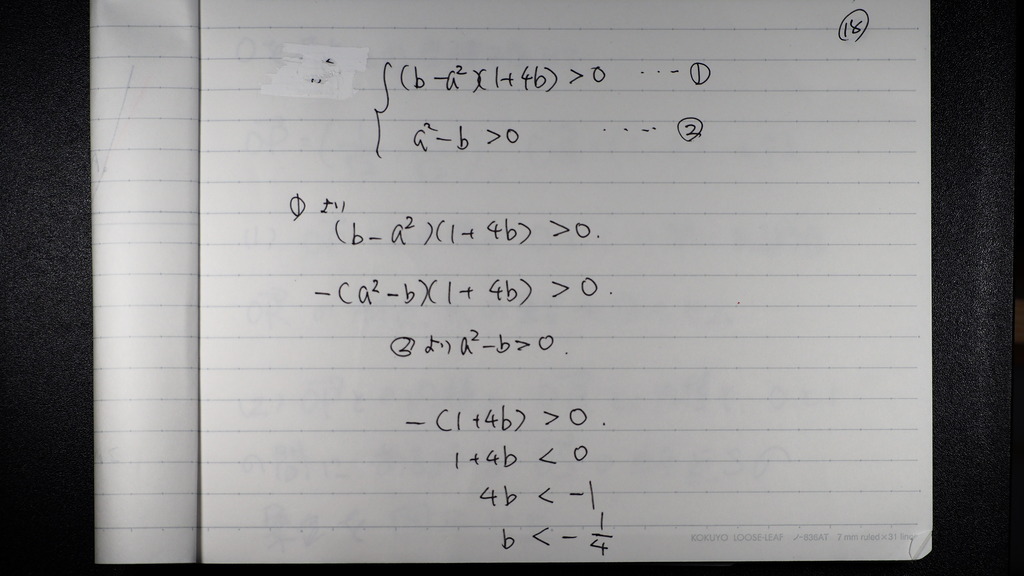 ⑱
(b-a²)(1+4b)>0 ····①
a²-b>0 ····②
①より
(b-a²)(1+4b)>0.
-(a²-b)(1+4b)>0.
②よりa²-b>0.
-(1+4b)>0.
1+4b<0
4b<-1
b<-1/4
KOKUYO LOOSE-LEAF ノ-836AT 7 mm ruled×31 lines